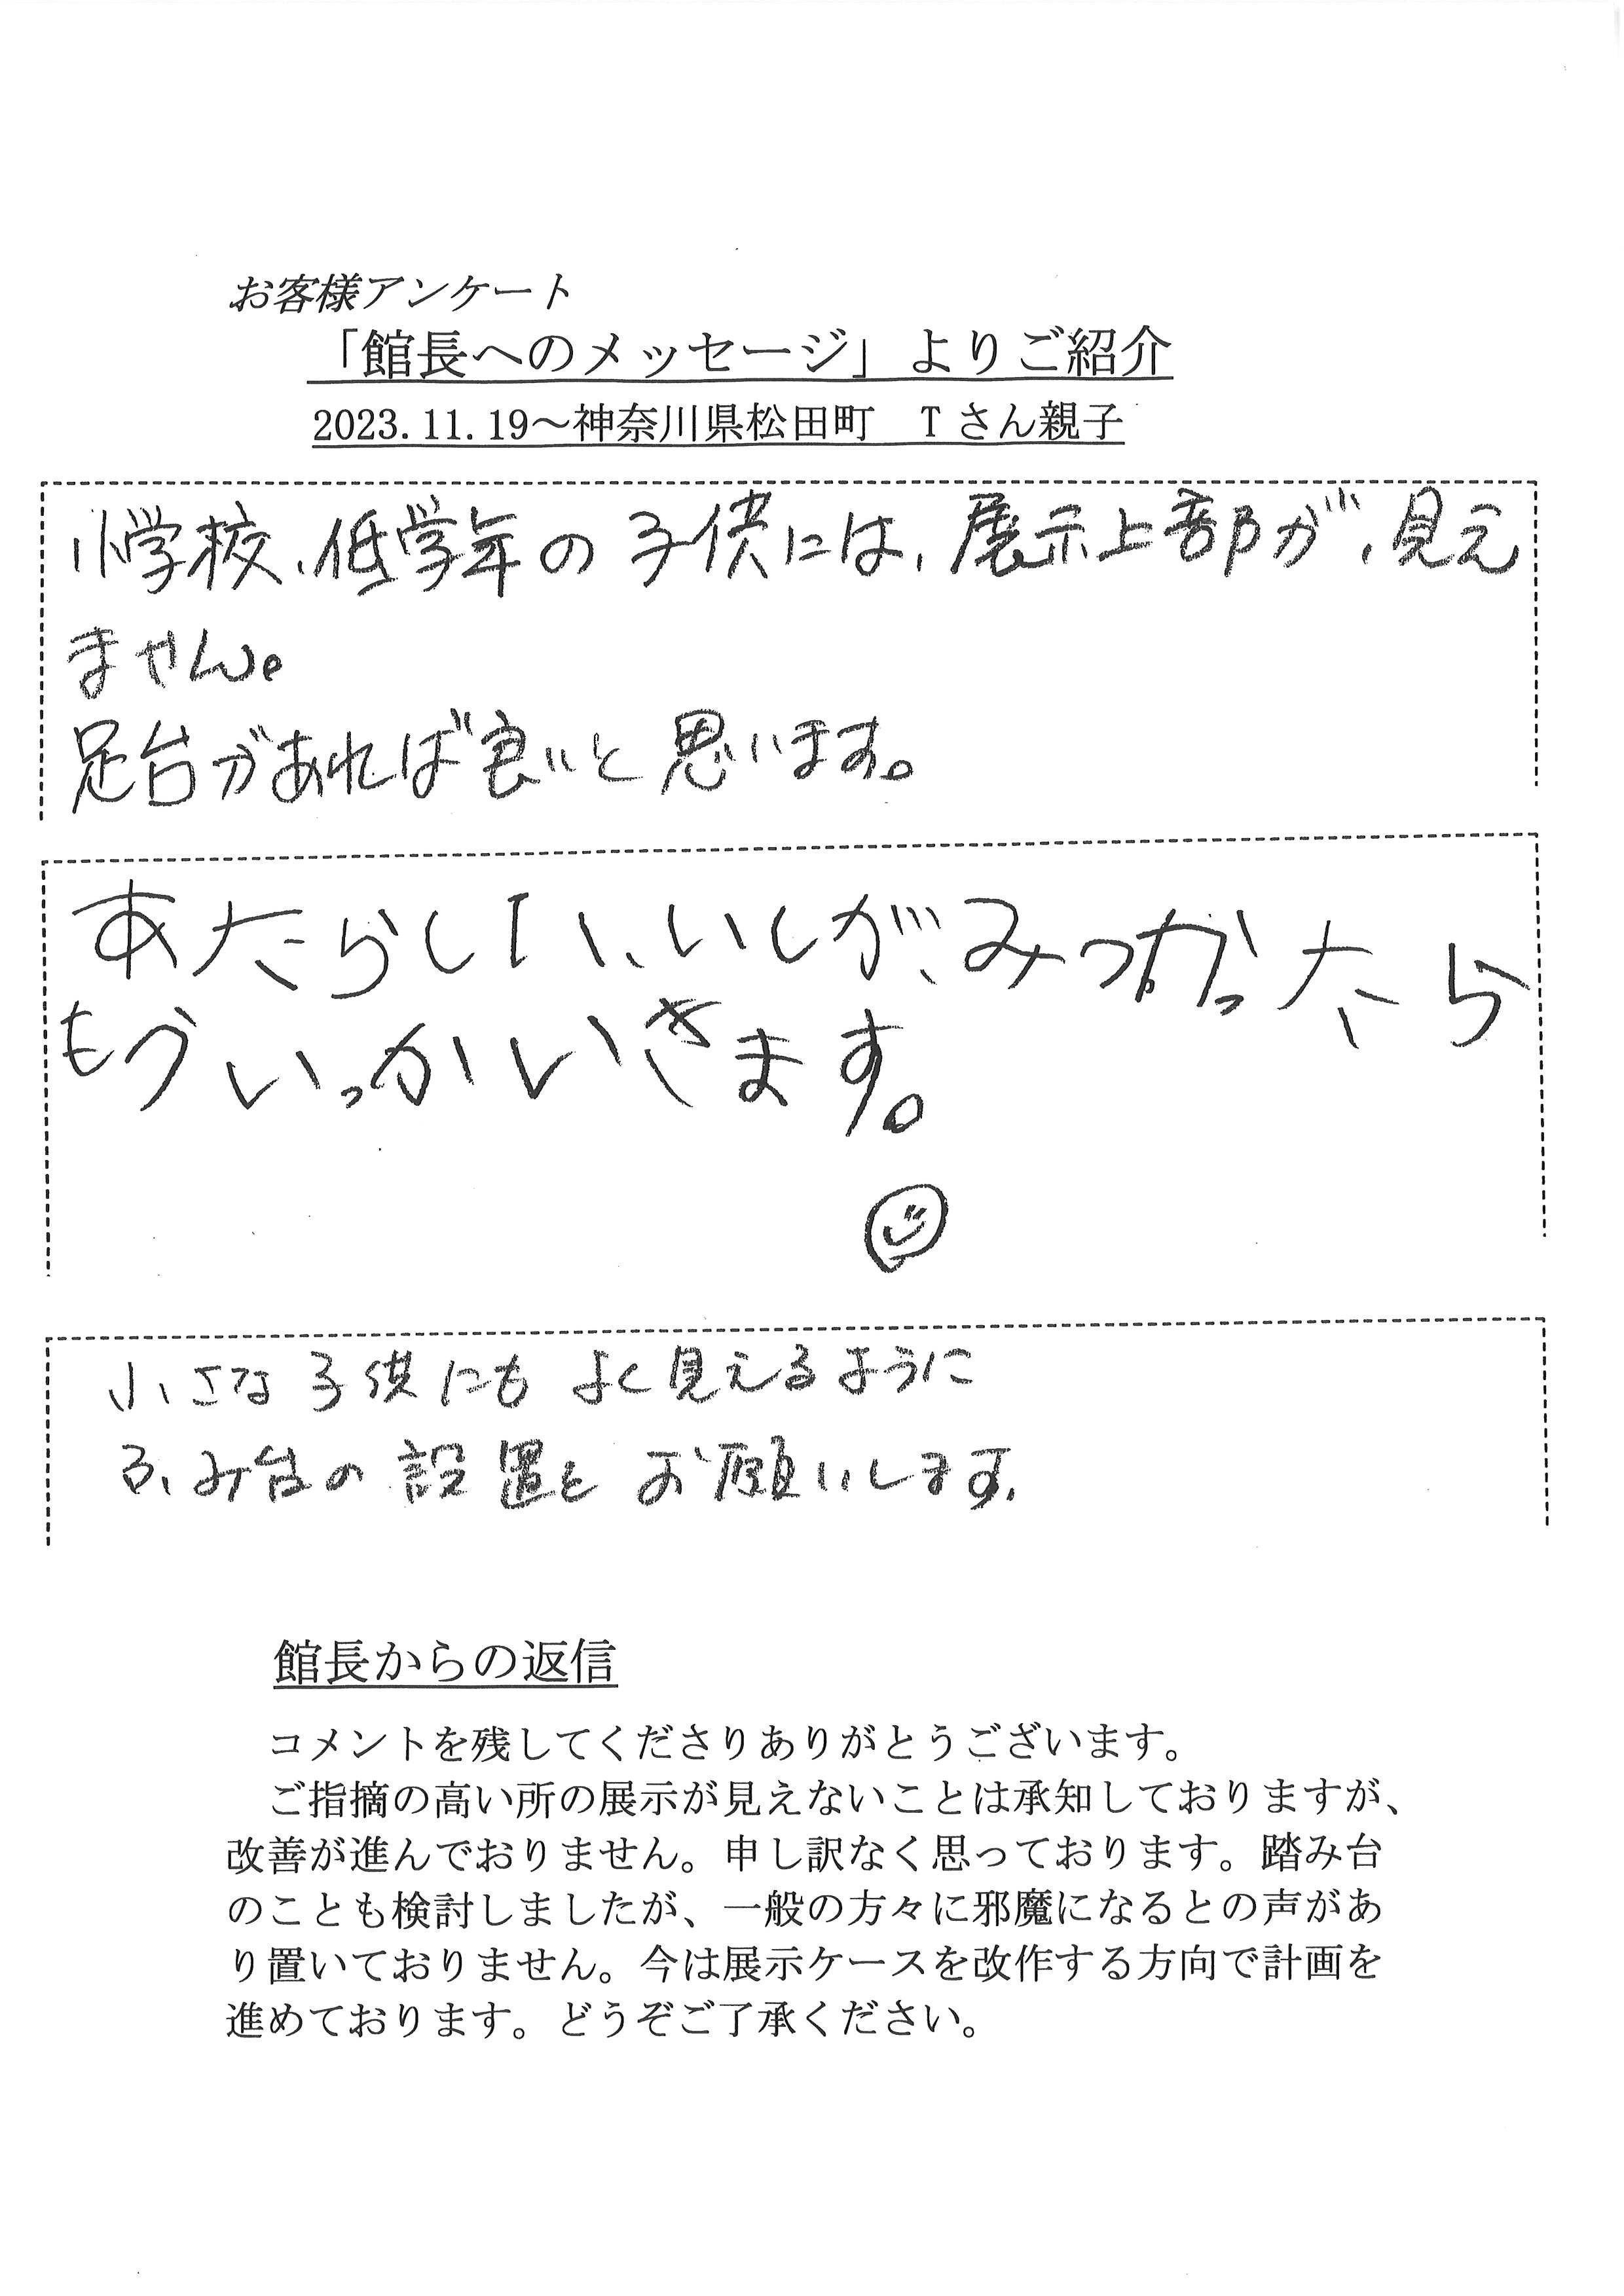 お客様アンケート
「館長へのメッセージ」よりご紹介
2023.11.19～神奈川県松田町　Tさん親子
小学校、低学年の子供には、展示上部が、見え
ません。
足台があれば良いと思います。
あたらしい、いしが、みつかったら
もういっかいいきます。
小さな子供にもよく見えるように
ふみ台の設置をお願いします。
館長からの返信
コメントを残してくださりありがとうございます。
ご指摘の高い所の展示が見えないことは承知しておりますが、
改善が進んでおりません。申し訳なく思っております。踏み台
のことも検討しましたが、一般の方々に邪魔になるとの声があ
り置いておりません。今は展示ケースを改作する方向で計画を
進めております。どうぞご了承ください。